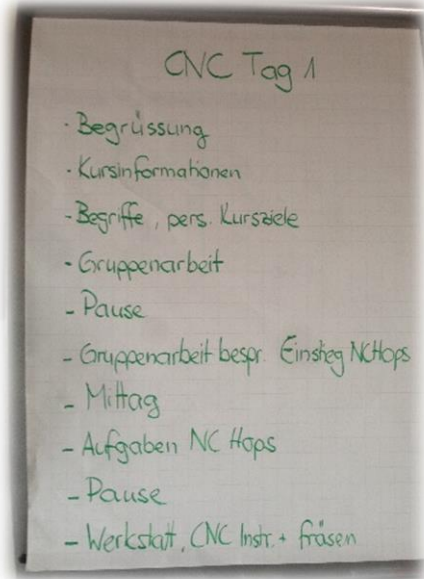 CNC Tag 1
· Begrüssung
· Kursinformationen
- Begriffe, pers. Kursziele
- Gruppenarbeit
- Pause
- Gruppenarbeit bespr. Einstieg NCHops
- Mittag
- Aufgaben NC Hops
- Pause
- Werkstatt, CNC Instr. + fräsen